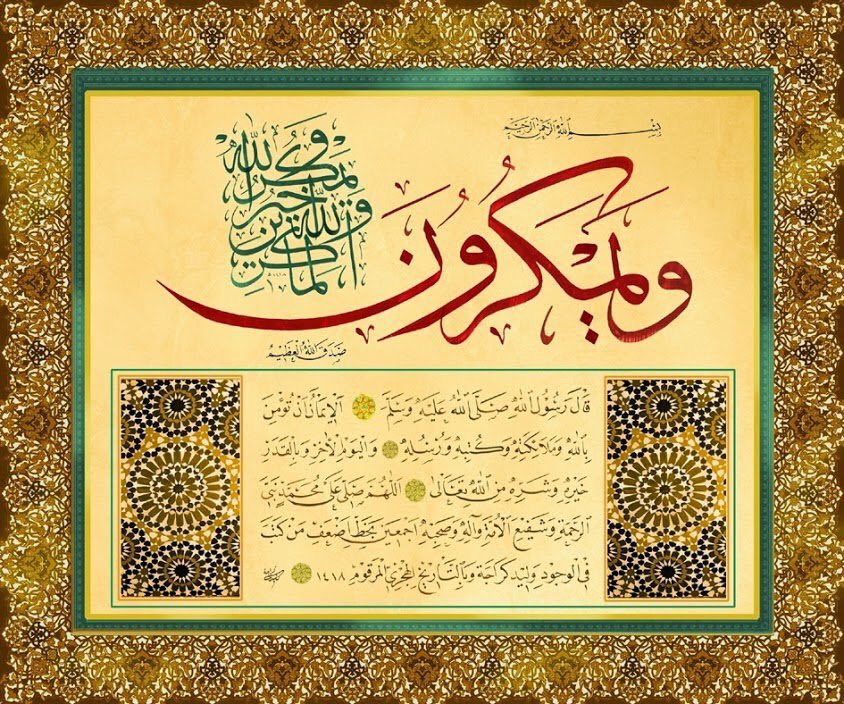 بسم الله الرحمن الرحيم
ويمكرون
ويمكر الله
والله خير
الماكرين
صدق الله العظيم
قال رسول الله صلى الله عليه وسلم الإيمان أن تؤمن
بالله وملائكته وكتبه ورسله واليوم الآخر وبالقدر
خيره وشره من الله تعالى اللهم صل على محمد نبي
الرحمة وشفيع الأمة وآله وصحبه أجمعين بخط أضعف من كتب
في الوجود وليد كراجة وبالتاريخ الهجري المرقوم ١٤١٨